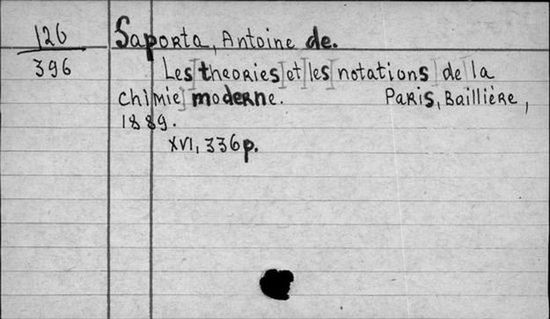 126
396
Saporta, Antoine de.
Les theories et les notations de la
chimie moderne. Paris, Baillière,
1889.
XVI, 336 p.